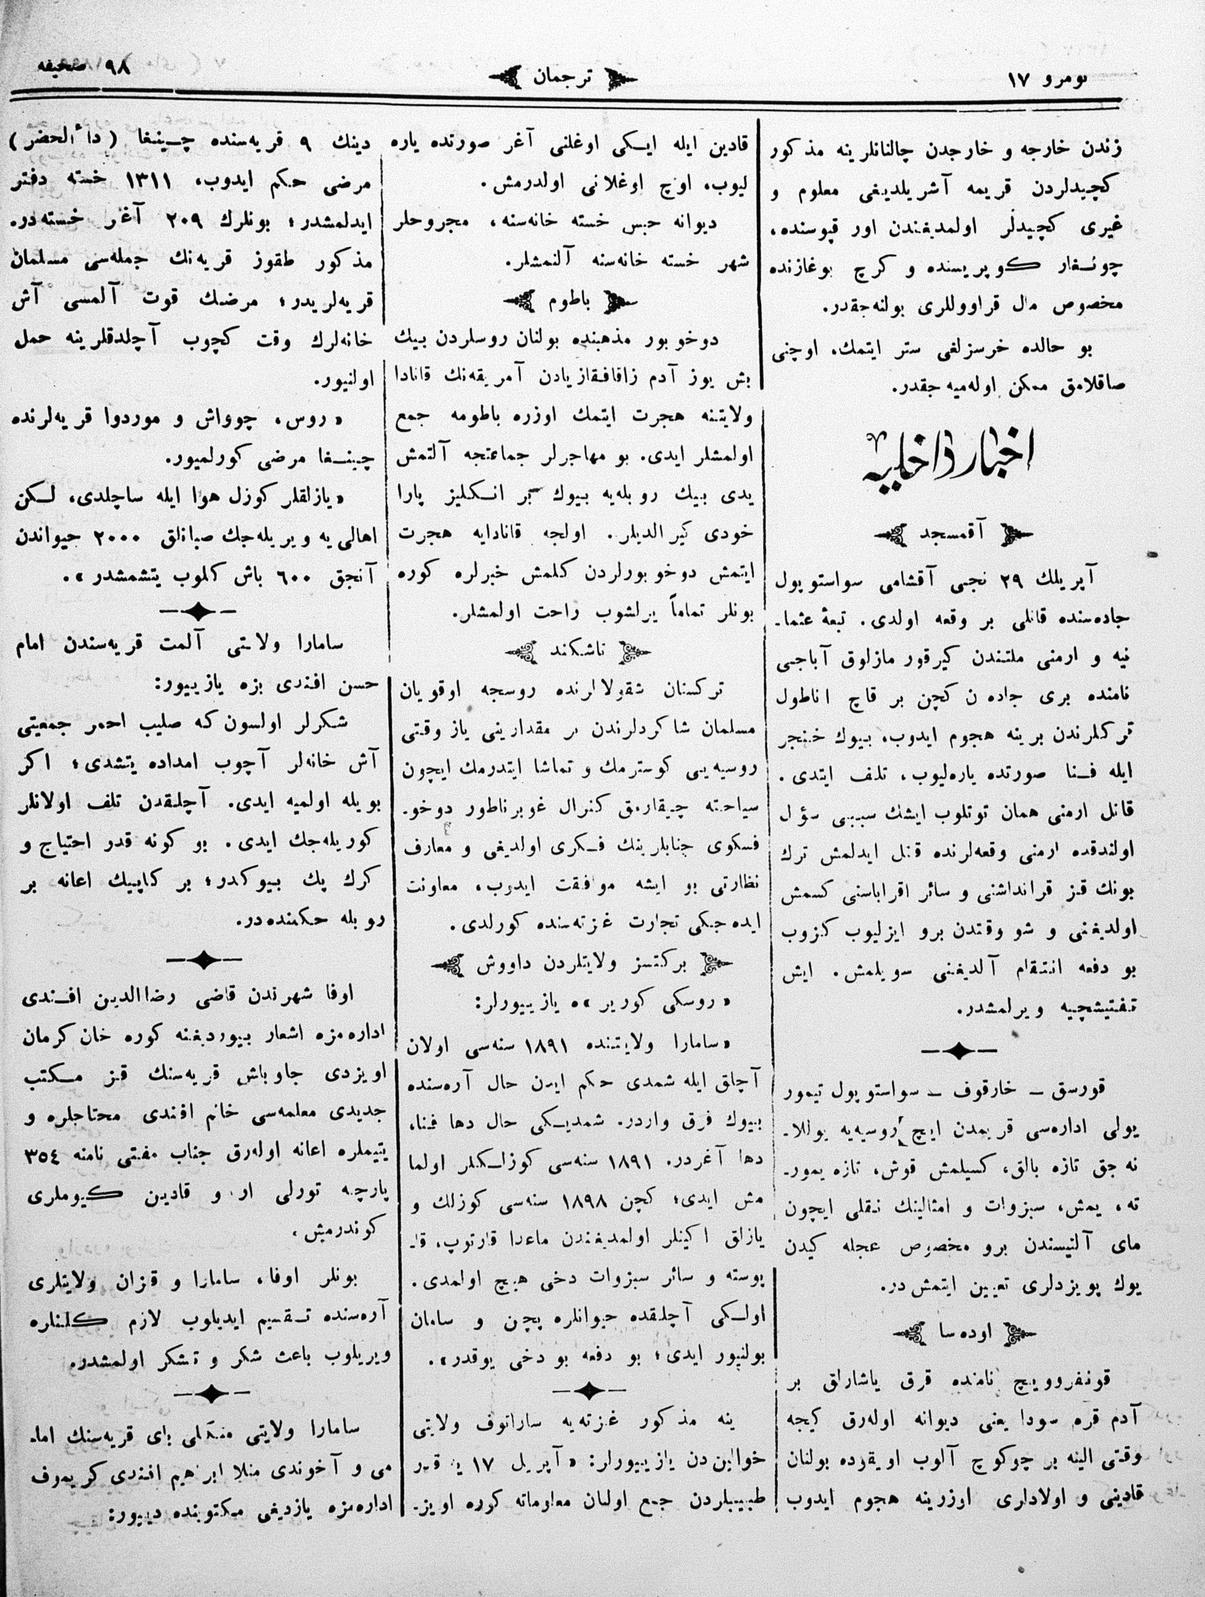 نومرو ١٧
ترجمان
٩٨ صحیفه
زندن خارجه و خارجدن چالنانلرینه مذکور
کچیدلردن قریمه آشریلدیغی معلوم و
غیری کچیدلر اولمدیغندن اور قپوسنده،
چونغار کوپریسنده و کرچ بوغازنده
مخصوص مال قراووللری بولنه جقدر.
بو حالده خرسزلغی ستر ایتمك، اوچنی
صاقلامق ممکن اوله میه جقدر.
اخبار داخلیه
آقمسجد
آپریلك ٢٩ نجی آقشامی سواستوپول
جاده سنده قانلی بر وقعه اولدی. تبعهٔ عثما-
نیه و ارمنی ملتندن کیرقور مازلوق آباجی
نامنده بری جاده ن کچن بر قاچ اناطول
ترکلرندن برینه هجوم ایدوب، بیوك خنجر
ایله فنا صورتده یاره لیوب، تلف ایتدی.
قاتل ارمنی همان توتلوب ایشك سببی سؤل
اولندقده ارمنی وقعه لرنده قتل ایدلمش ترك
بونك قز قرانداشنی و سائر اقراباسنی کسمش
اولدیغنی و شو وقتدن برو ایزلیوب کزوب
بو دفعه انتقام آلدیغنی سویلمش. ایش
تفتیشچیه ویرلمشدر.
قورسق - خارقوف - سواستوپول تیمور
یولی اداره سی قریمدن ایچ روسیه یه یوللا-
نه جق تازه بالق، کسیلمش قوش، تازه یمور-
ته، یمش، سبزوات و امثالینك نقلی ایچون
مای آلتیسندن برو مخصوص عجله کیدن
یوك پویزدلری تعیین ایتمش در.
اوده سا
قونفروویچ نامنده قرق یاشارلق بر
آدم قره سودا یعنی دیوانه اوله رق کیجه
وقتی الینه بر چوکوچ آلوب اویقوده بولنان
قادینی و اولاداری اوزرینه هجوم ایدوب
قادین ایله ایکی اوغلنی آغر صورتده یاره
لیوب، اوچ اوغلانی اولدرمش.
دیوانه حبس خسته خانه سنه، مجروحلر
شهر خسته خانه سنه آلنمشلر.
باطوم
دوخوبور مذهبنده بولنان روسلردن بیك
بش یوز آدم زاقافقازیادن آمریقه نك قانادا
ولایتنه هجرت ایتمك اوزره باطومه جمع
اولمشلر ایدی. بو مهاجرلر جماعتجه آلتمش
یدی بیك روبله یه بیوك بر انکلیز پارا
خودی کیرالدیلر. اولجه قانادایه هجرت
ایتمش دوخوبورلردن کلمش خبرلره کوره
بونلر تماماً یرلشوب راحت اولمشلر.
تاشکند
ترکستان شقولالرنده روسجه اوقویان
مسلمان شاکردلرندن بر مقدارینی یاز وقتی
روسیه یی کوسترمك و تماشا ایتدرمك ایچون
سیاحته چیقارمق کنرال غوبرناطور دوخو-
فسکوی جنابلرینك فکری اولدیغی و معارف
نظارتی بو ایشه موافقت ایدرب، معاونت
ایده جکی تجارت غزته سنده کورلدی.
برکتسز ولایتلردن داووش
«روسکی کوریر» ه یازییورلر:
«سامارا ولایتنده ١٨٩١ سنه سی اولان
آچلق ایله شمدی حکم ایدن حال آره سنده
بیوك فرق واردر. شمدیکی حال دها فنا،
دها آغردر. ١٨٩١ سنه سی کوزلکلر اولما
مش ایدی؛ کچن ١٨٩٨ سنه سی کوزلك و
یازلق اکینلر اولمدیغندن ماعدا قارتوپ، قا-
پوسته و سائر سبزوات دخی هیچ اولمدی.
اولکی آچلقده حیوانلره پچن و سامان
بولنیور ایدی؛ بو دفعه بو دخی یوقدر».
ینه مذکور غزته یه ساراتوف ولایتی
خوالین دن یازییورلر: «آپریل ١٧ یه قدر
طبیبلردن جمع اولنان معلوماته کوره اویز-
دینك ٩ قریه سنده چینغا (دأالحضر)
مرضی حکم ایدوب، ١٣١١ خسته دفتر
ایدلمشدر؛ بونلرك ٢٠٩ آغر خسته در.
مذکور طقوز قریه نك جمله سی مسلمان
قریه لریدر؛ مرضك قوت آلمسی آش
خانه لرك وقت کچوب آچلدقلرینه حمل
اولنیور.
«روس، چوواش و موردوا قریه لرنده
چینغا مرضی کورلمیور.
«یازلقلر کوزل هوا ایله ساچلدی، لکن
اهالی یه ویریله جك صبانلق ٢٠٠٠ حیواندن
آنجق ٦٠٠ باش کلوب یتشمشدر».
سامارا ولایتی آلمت قریه سندن امام
حسن افندی بزه یازییور:
شکرلر اولسون که صلیب احمر جمعیتی
آش خانه لر آچوب امداده یتشدی؛ اکر
بویله اولمیه ایدی. آچلقدن تلف اولانلر
کوریله جك ایدی. بو کونه قدر احتیاج و
کرك پك بیوکدر؛ بر کاپیك اعانه بر
روبله حکمنده در.
اوفا شهرندن قاضی رضاالدین افندی
اداره مزه اشعار بیوردیغنه کوره خان کرمان
اویزدی جاوباش قریه سنك قز مکتب
جدیدی معلمه سی خانم افندی محتاجلره و
یتیملره اعانه اوله رق جناب مفتی نامنه ٣٥٤
پارچه تورلی ار و قادین کیوملری
کوندرمیش.
بونلر اوفا، سامارا و قزان ولایتلری
آره سنده تقسیم ایدیلوب لازم کلنلره
ویریلوب باعث شکر و تشکر اولمشدر.
سامارا ولایتی بای قریه سنك اما-
می و آخوندی منلا ابراهیم افندی کریموف
اداره مزه یازدیغی مکتوبنده دییور: